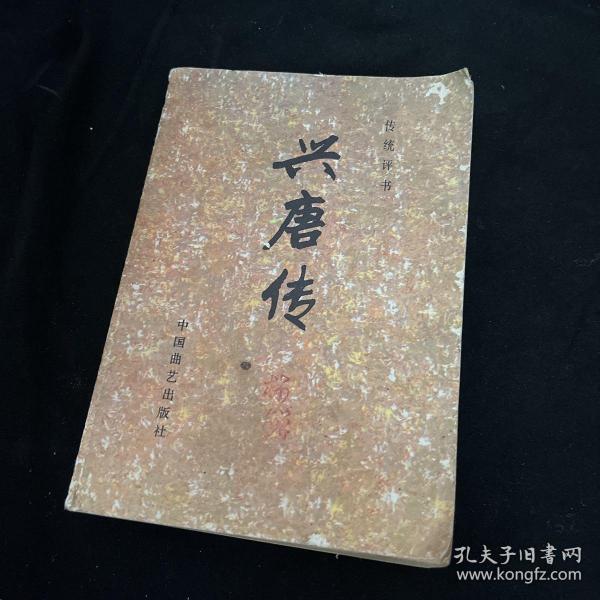 传统评书
兴唐传
中国曲艺出版社
孔夫子旧書网
www.kongfz.com